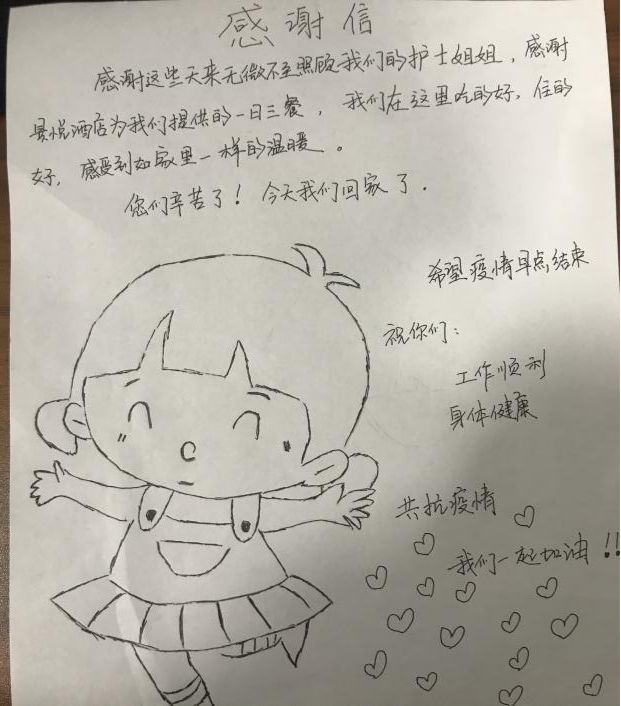 感谢信
感谢这些天来无微不至照顾我们的护士姐姐，感谢
景悦酒店为我们提供的一日三餐，我们在这里吃的好，住的
好，感受到如家里一样的温暖。
您们辛苦了！今天我们回家了.
希望疫情早点结束
祝你们：
工作顺利
身体健康
共抗疫情
我们一起加油!!